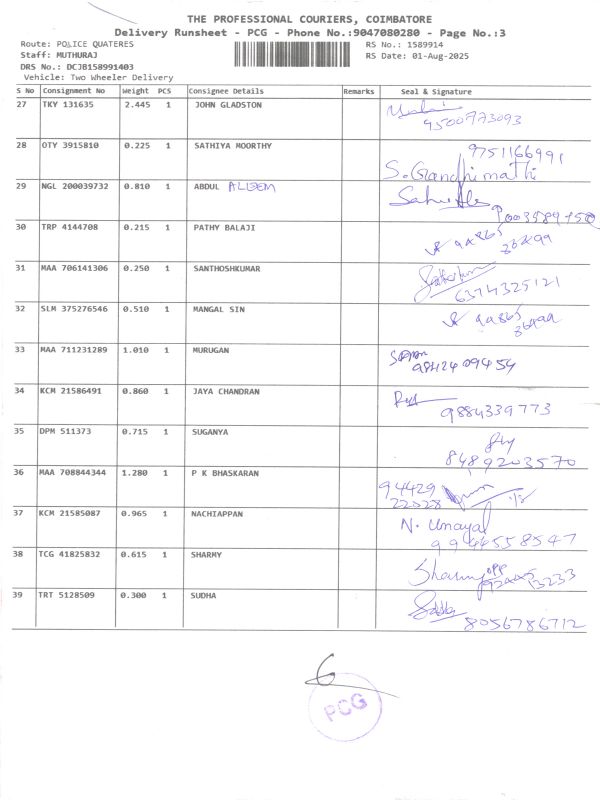 THE PROFESSIONAL COURIERS, COIMBATORE
Delivery Runsheet - PCG - Phone No.:9047080280 - Page No.:3
Route: POLICE QUATERES
RS No.: 1589914
Staff: MUTHURAJ
RS Date: 01-Aug-2025
DRS No.: DCJB158991403
Vehicle: Two Wheeler Delivery
S No Consignment No Weight PCS Consignee Details Remarks Seal & Signature
27 TKY 131635 2.445 1 JOHN GLADSTON
9500773093
28 OTY 3915810 0.225 1 SATHIYA MOORTHY 9751166991
S. Gandhimathi
29 NGL 200039732 0.810 1 ABDUL ALEEM
30 TRP 4144708 0.215 1 PATHY BALAJI
31 MAA 706141306 0.250 1 SANTHOSHKUMAR
6374325121
32 SLM 375276546 0.510 1 MANGAL SIN
33 MAA 711231289 1.010 1 MURUGAN
9842409454
34 KCM 21586491 0.860 1 JAYA CHANDRAN
9884339773
35 DPM 511373 0.715 1 SUGANYA
8489203570
36 MAA 708844344 1.280 1 P K BHASKARAN
94429
22028
37 KCM 21585087 0.965 1 NACHIAPPAN N. Unayal
9944558547
38 TCG 41825832 0.615 1 SHARMY
Sharmy
39 TRT 5128509 0.300 1 SUDHA
8056786712
PCG